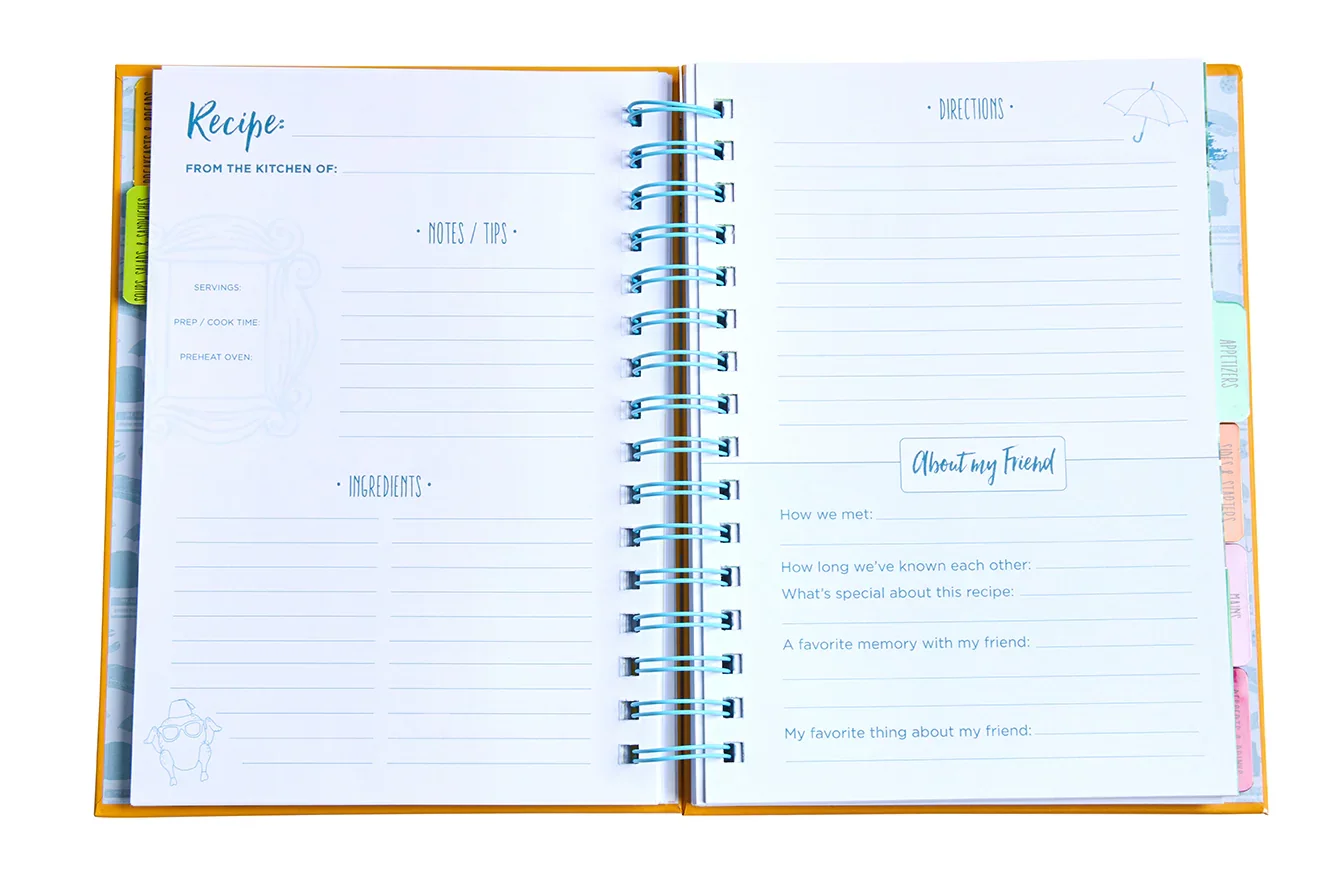 BREAKFASTS & BREADS
SOUPS, SALADS & SANDWICHES
Recipe:
FROM THE KITCHEN OF:
· NOTES / TIPS ·
SERVINGS:
PREP / COOK TIME:
PREHEAT OVEN:
· INGREDIENTS ·
· DIRECTIONS ·
About my Friend
How we met:
How long we've known each other:
What's special about this recipe:
A favorite memory with my friend:
My favorite thing about my friend:
APPETIZERS
SIDES & STARTERS
MAINS
DESSERTS & DRINKS